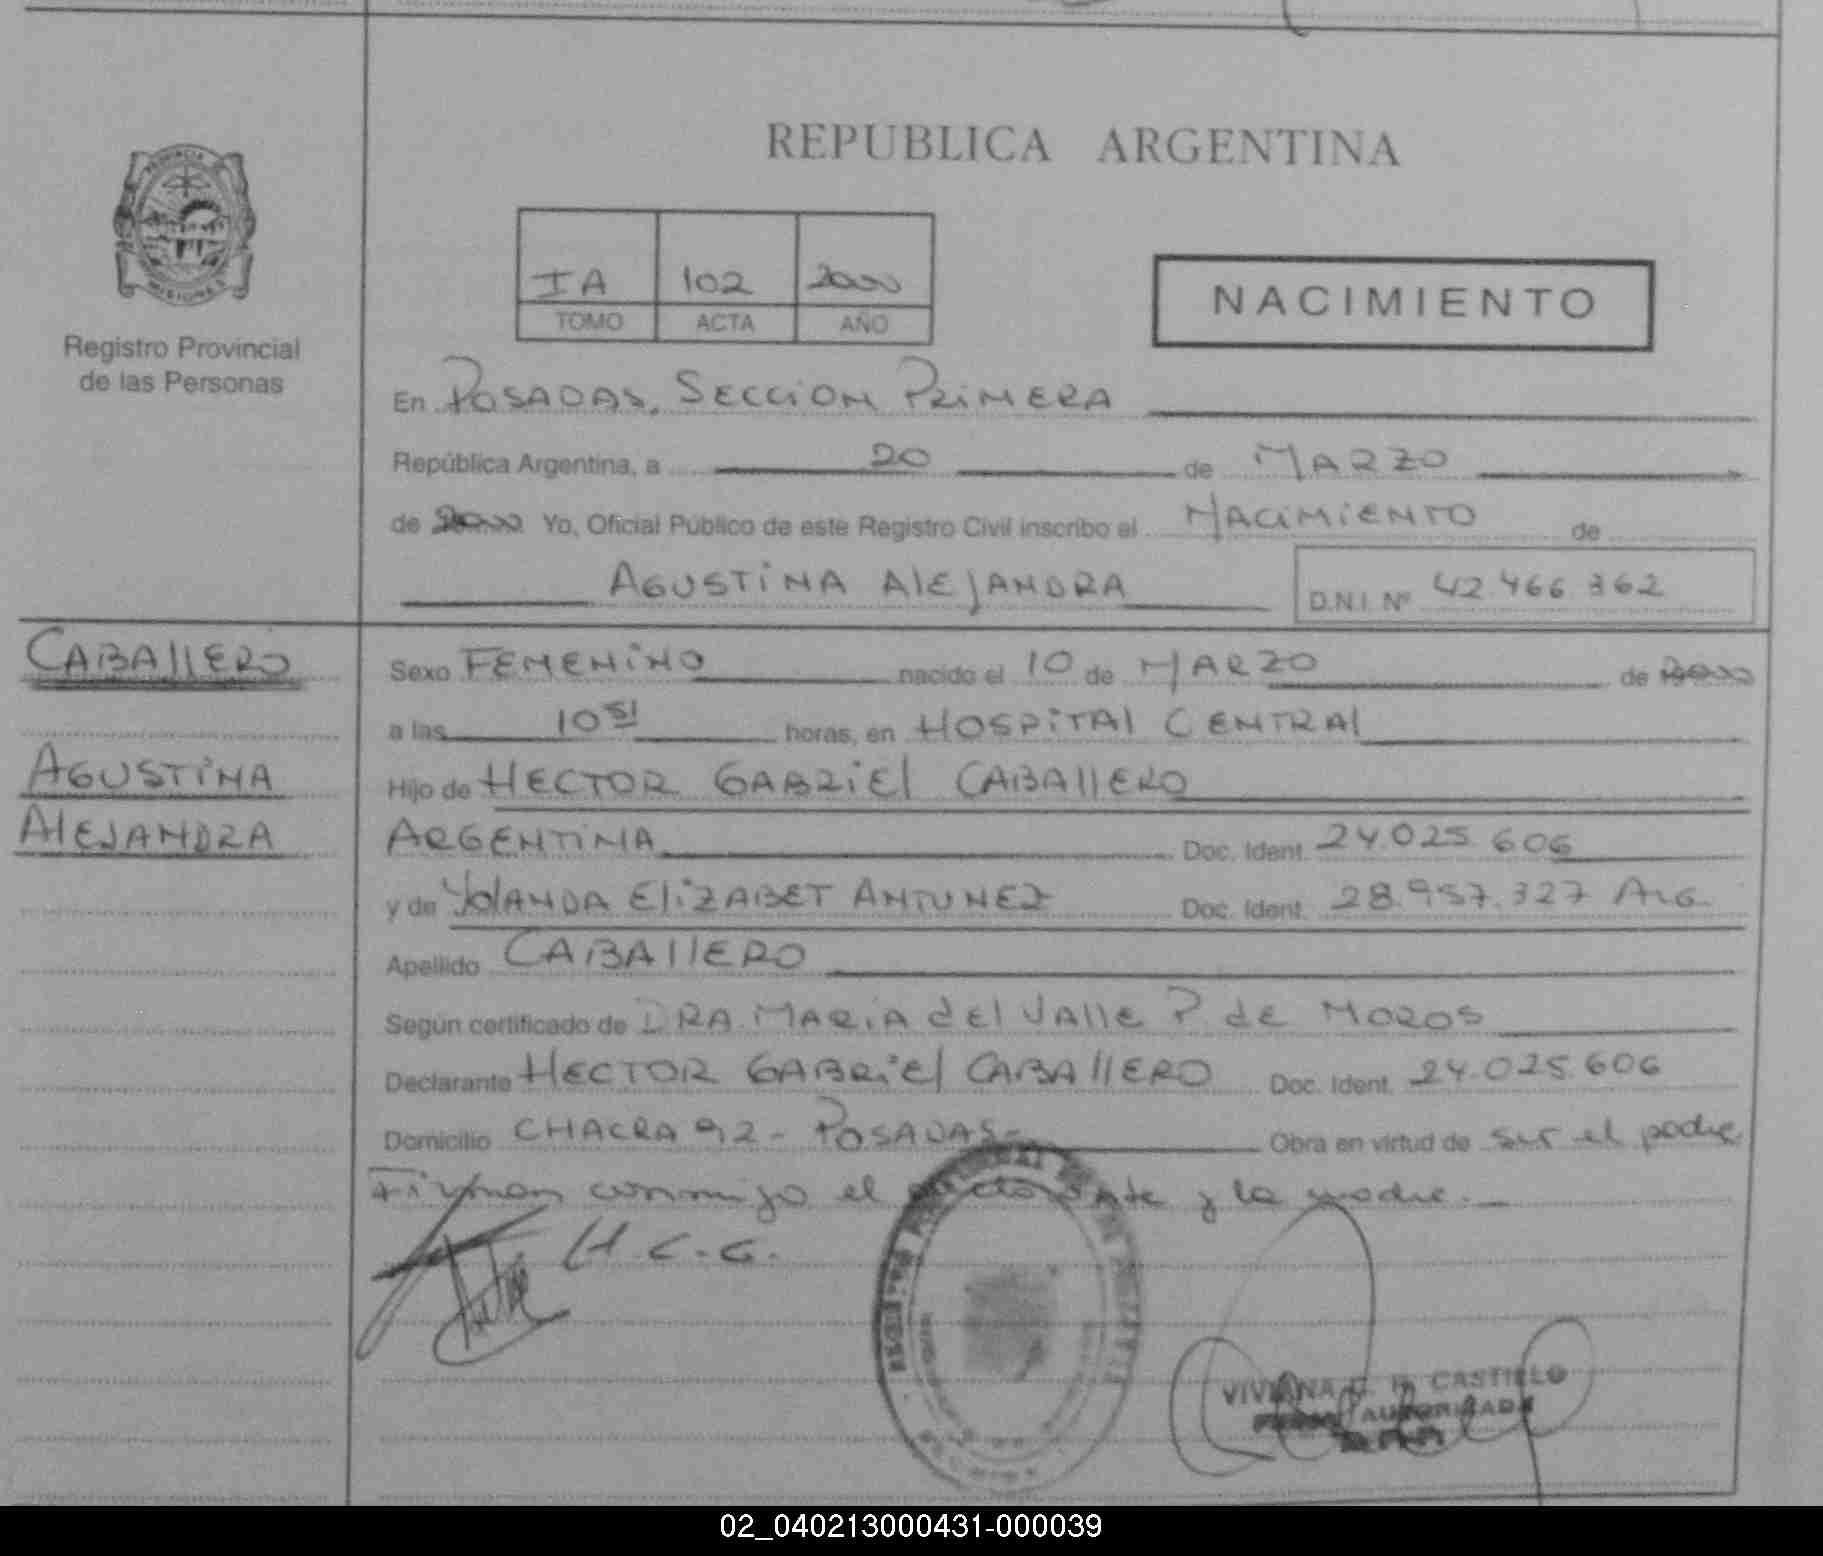 REPUBLICA ARGENTINA
PROVINCIA
MISIONES
Registro Provincial
de las Personas
IA 102 2000
TOMO ACTA AÑO
NACIMIENTO
En POSADAS, SECCION PRIMERA
República Argentina, a 20 de MARZO
de 2000 Yo, Oficial Público de este Registro Civil inscribo el NACIMIENTO de
AGUSTINA ALEJANDRA D.N.I. Nº 42.466.362
CABALLERO
AGUSTINA
ALEJANDRA
Sexo FEMENINO nacido el 10 de MARZO de 2000
a las 10 51 horas, en HOSPITAL CENTRAL
Hijo de HECTOR GABRIEL CABALLERO
ARGENTINA Doc. Ident. 24.025.606
y de YOLANDA ELIZABET ANTUNEZ Doc. Ident. 28.957.327 ARG.
Apellido CABALLERO
Según certificado de DRA. MARIA del VALLE P. de MOROS
Declarante HECTOR GABRIEL CABALLERO Doc. Ident. 24.025.606
Domicilio CHACRA 92 - POSADAS- Obra en virtud de ser el padre
Firman conmigo el declarante y la madre.
H.C.G.
VIVIANA CASTILLO
AUTORIZADA
02_040213000431-000039